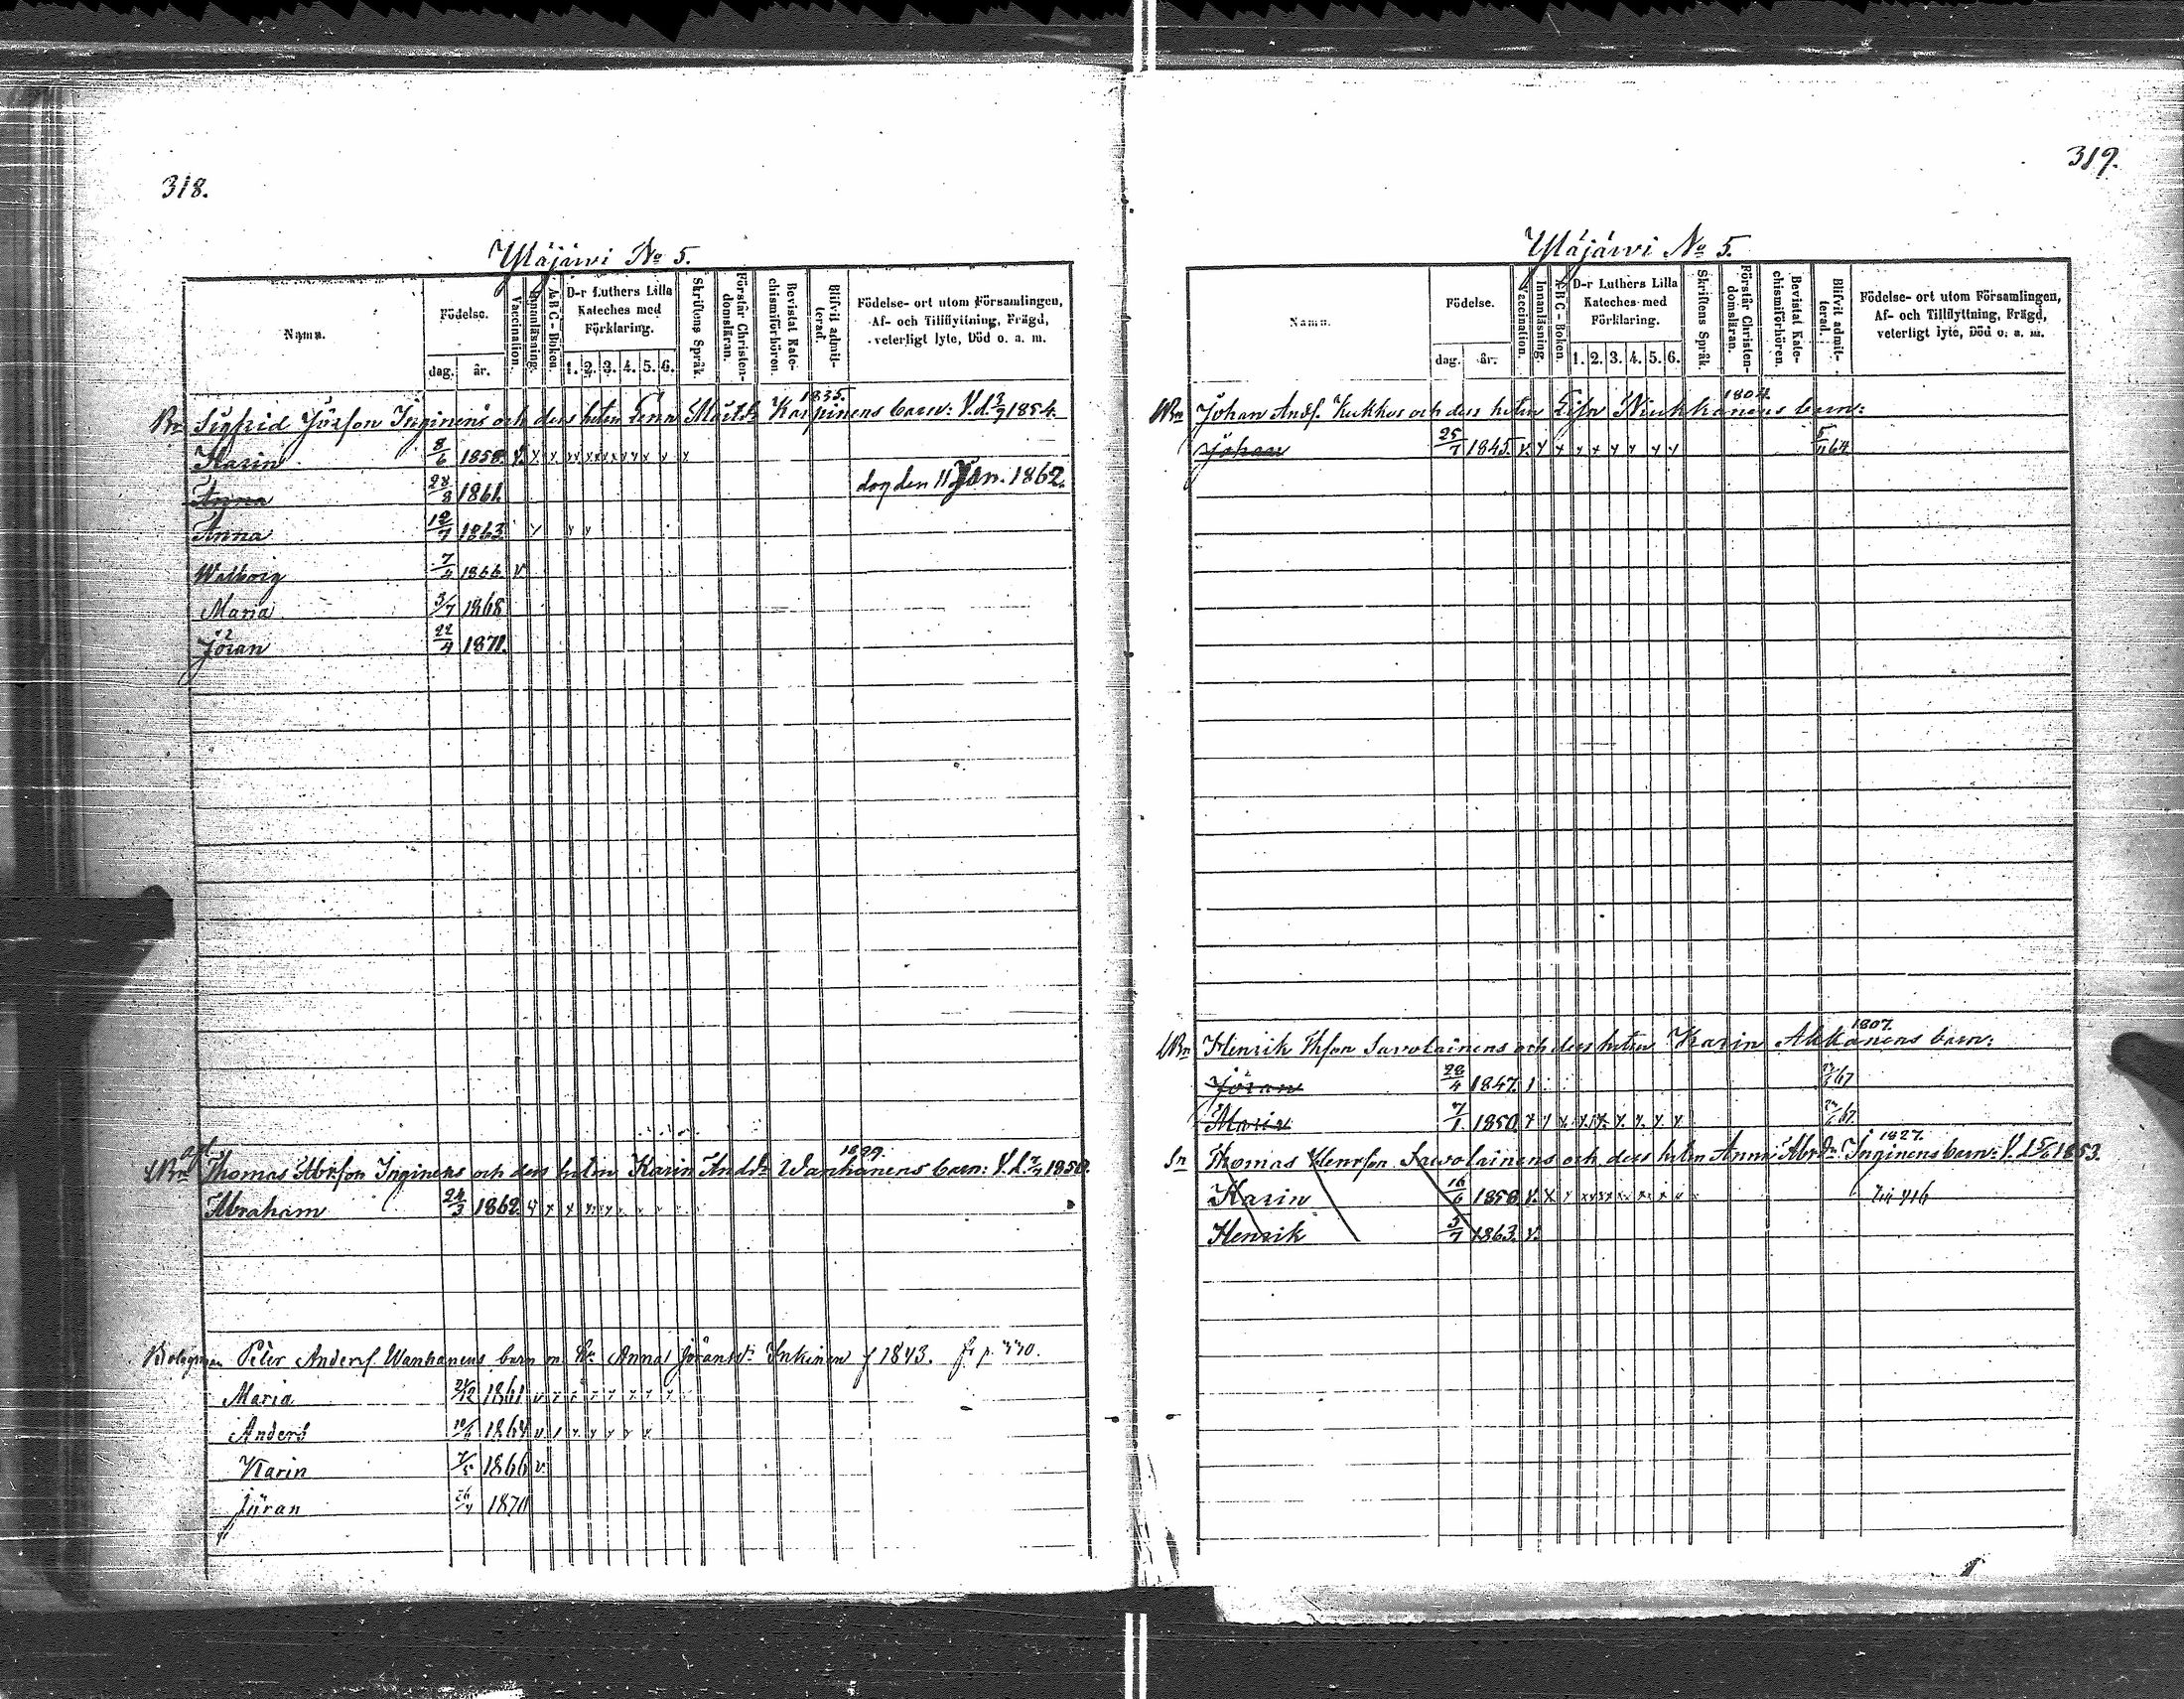 318.
Yläjärwi No 5.
Namn.
Födelse.
dag.
år.
Vaccination.
Innanläsning.
A B C - Boken.
D-r Luthers Lilla
Kateches med
Förklaring.
1. 2. 3. 4. 5. 6.
Skriftens Språk.
Förstår Christen-
domsläran.
Bevistat Kate-
chismiförhören.
Blifvit admit-
terad.
Födelse- ort utom Församlingen,
Af- och Tillflyttning, Frägd,
veterligt lyte, Död o. a. m.
1835.
Bn Sigfrid Jörson Inginens och dess hstru Lena Karpinens barn: V.d. 1854.
Karin 8/6 1858. v.
Anna 28/8 1861. dog den 11 Jan. 1862.
Anna 18/7 1863.
Walborg 7/4 1866 v.
Maria 3/7 1868
Jöran 22/4 1871.
Thomas Abrson Inginens och dess hstru Karin Wanhanens barn: V.d. 1850.
Abraham 24/3 1862
Bolagsman Peter Anders. Wanhanens barn Anna Inkinen f 1843.
Maria 1861
Anders 1864
Karin 1866 v.
Jöran 1870
319.
Yläjärwi No 5.
Namn.
Födelse.
dag.
år.
Vaccination.
Innanläsning.
A B C - Boken.
D-r Luthers Lilla
Kateches med
Förklaring.
1. 2. 3. 4. 5. 6.
Skriftens Språk.
Förstår Christen-
domsläran.
Bevistat Kate-
chismiförhören.
Blifvit admit-
terad.
Födelse- ort utom Församlingen,
Af- och Tillflyttning, Frägd,
veterligt lyte, Död o. a. m.
1804.
Johan Kukkos och dess hstru Lisa barn:
Johan 25/7 1845. 64
1807.
Henrik Savolainens och dess hstru Karin Ahkanens barn:
Jöran 28/4 1847. 67
Maria 7/1 1850. 67
1827.
Thomas Henrson Savolainens och dess hstru Anna Abrdr Inginens barn: V.d. 1853.
Karin 16/6 1858. v.
Henrik 5/7 1863. v.